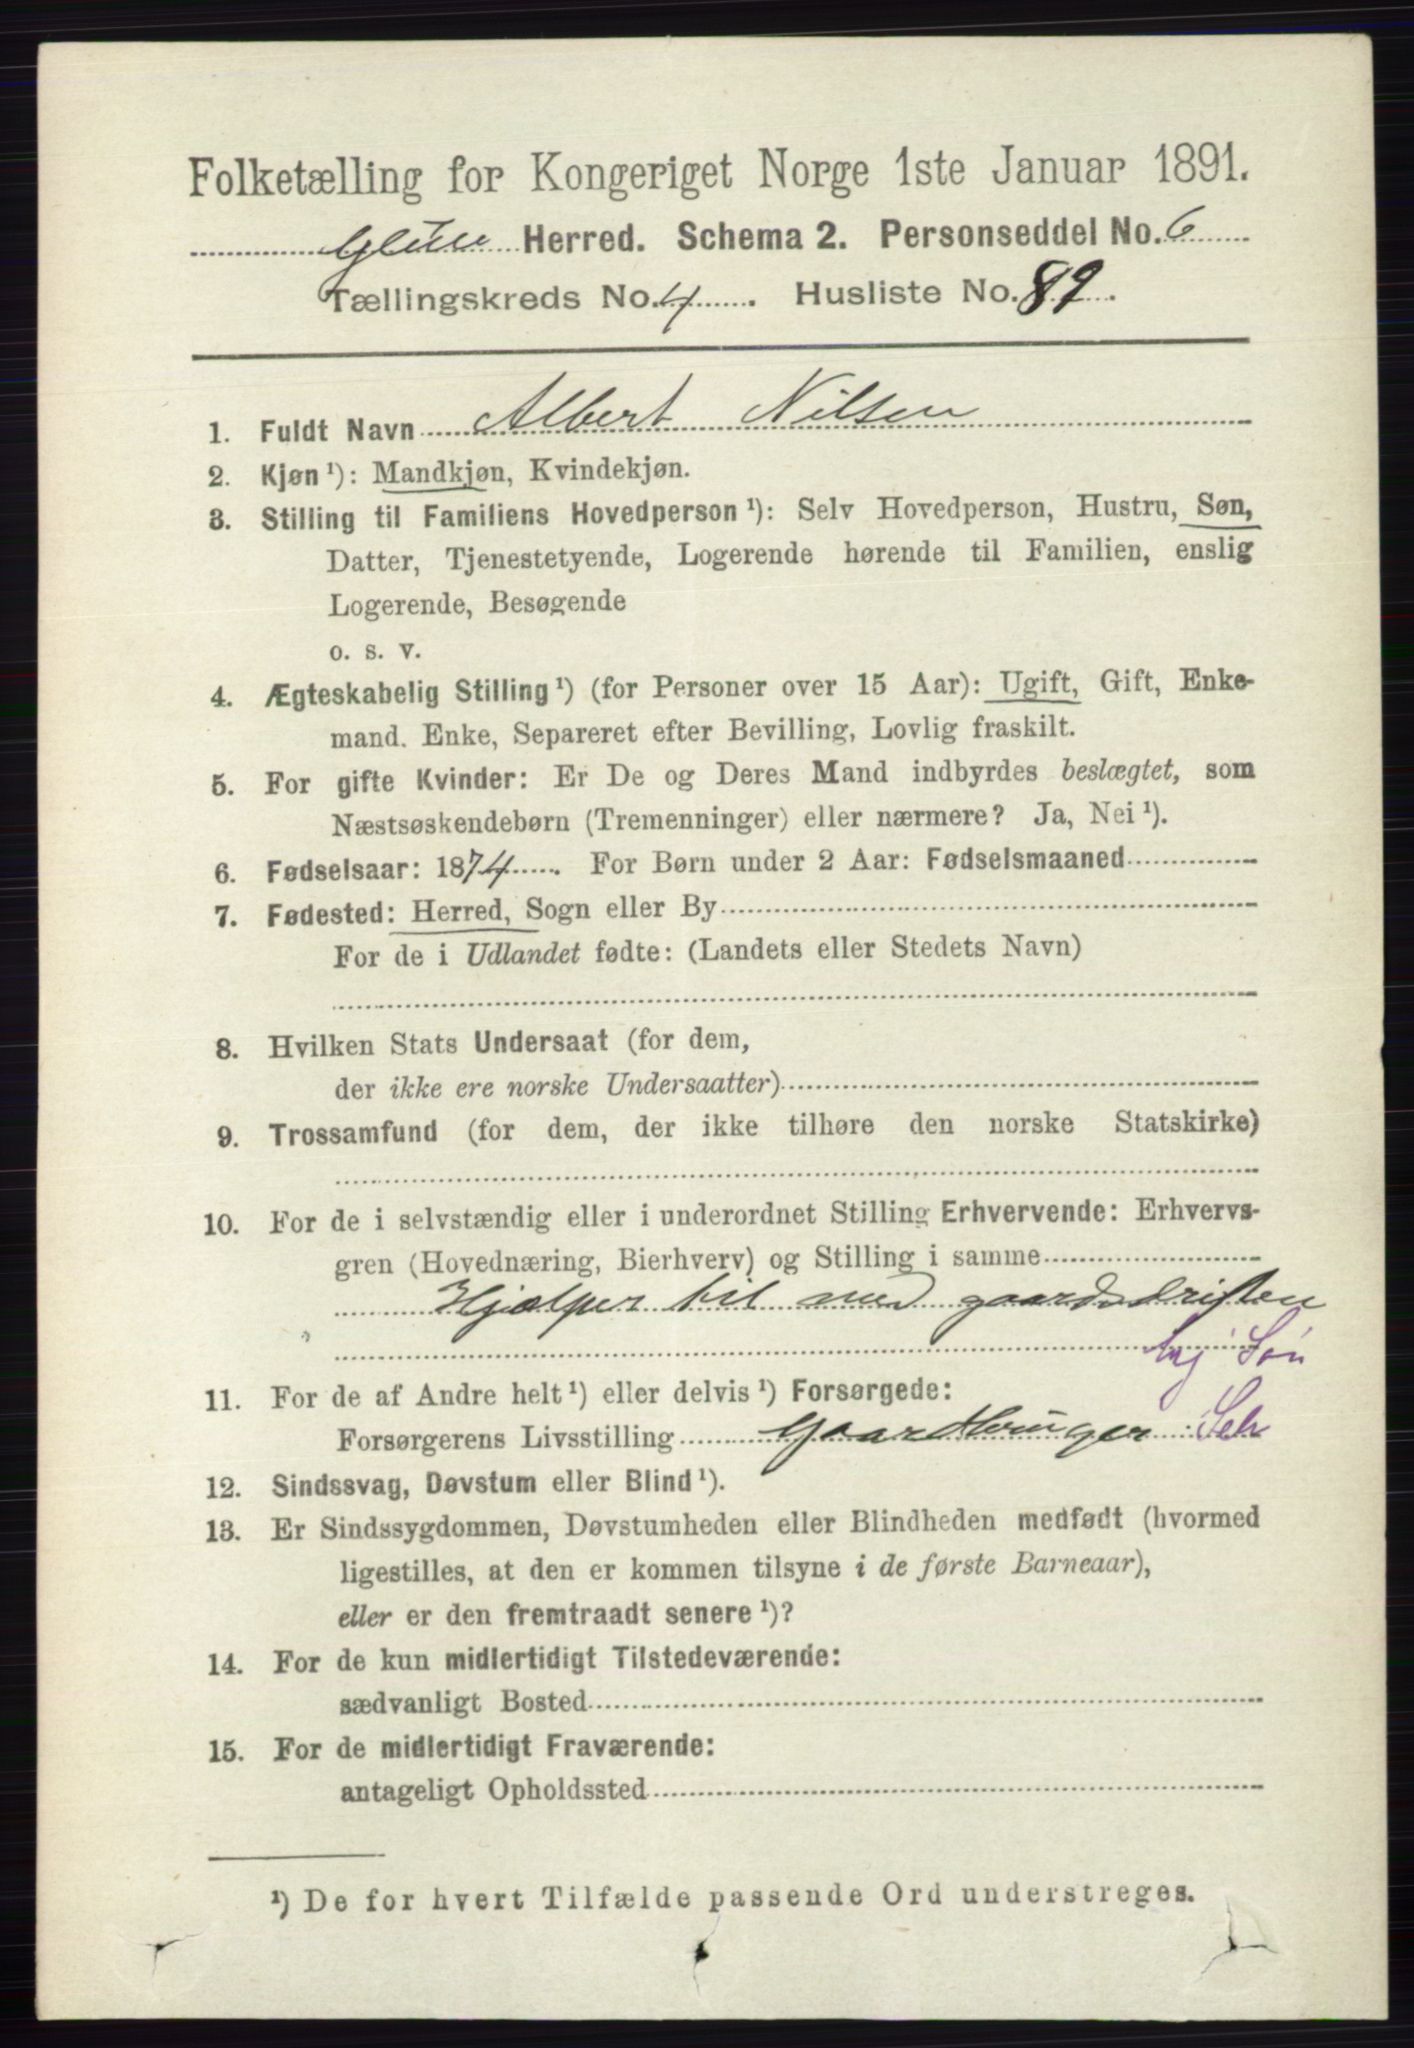 Folketælling for Kongeriget Norge 1ste Januar 1891.
Herred. Schema 2. Personseddel No. 6
Tællingskreds No. 4. Husliste No. 89.
1. Fuldt Navn Albert Nilsen
2. Kjøn ¹): Mandkjøn, Kvindekjøn.
3. Stilling til Familiens Hovedperson ¹): Selv Hovedperson, Hustru, Søn,
Datter, Tjenestetyende, Logerende hørende til Familien, enslig
Logerende, Besøgende
o. s. v.
4. Ægteskabelig Stilling ¹) (for Personer over 15 Aar): Ugift, Gift, Enke-
mand. Enke, Separeret efter Bevilling, Lovlig fraskilt.
5. For gifte Kvinder: Er De og Deres Mand indbyrdes beslægtet, som
Næstsøskendebørn (Tremenninger) eller nærmere? Ja, Nei ¹).
6. Fødselsaar: 1874. For Børn under 2 Aar: Fødselsmaaned
7. Fødested: Herred, Sogn eller By
For de i Udlandet fødte: (Landets eller Stedets Navn)
8. Hvilken Stats Undersaat (for dem,
der ikke ere norske Undersaatter)
9. Trossamfund (for dem, der ikke tilhøre den norske Statskirke)
10. For de i selvstændig eller i underordnet Stilling Erhvervende: Erhvervs-
gren (Hovednæring, Bierhverv) og Stilling i samme
Hjælper til med gaardsdriften
Søn
11. For de af Andre helt ¹) eller delvis ¹) Forsørgede:
Forsørgerens Livsstilling Gaardbruger Selv
12. Sindssvag, Døvstum eller Blind ¹).
13. Er Sindssygdommen, Døvstumheden eller Blindheden medfødt (hvormed
ligestilles, at den er kommen tilsyne i de første Barneaar),
eller er den fremtraadt senere ¹)?
14. For de kun midlertidigt Tilstedeværende:
sædvanligt Bosted
15. For de midlertidigt Fraværende:
antageligt Opholdssted
¹) De for hvert Tilfælde passende Ord understreges.